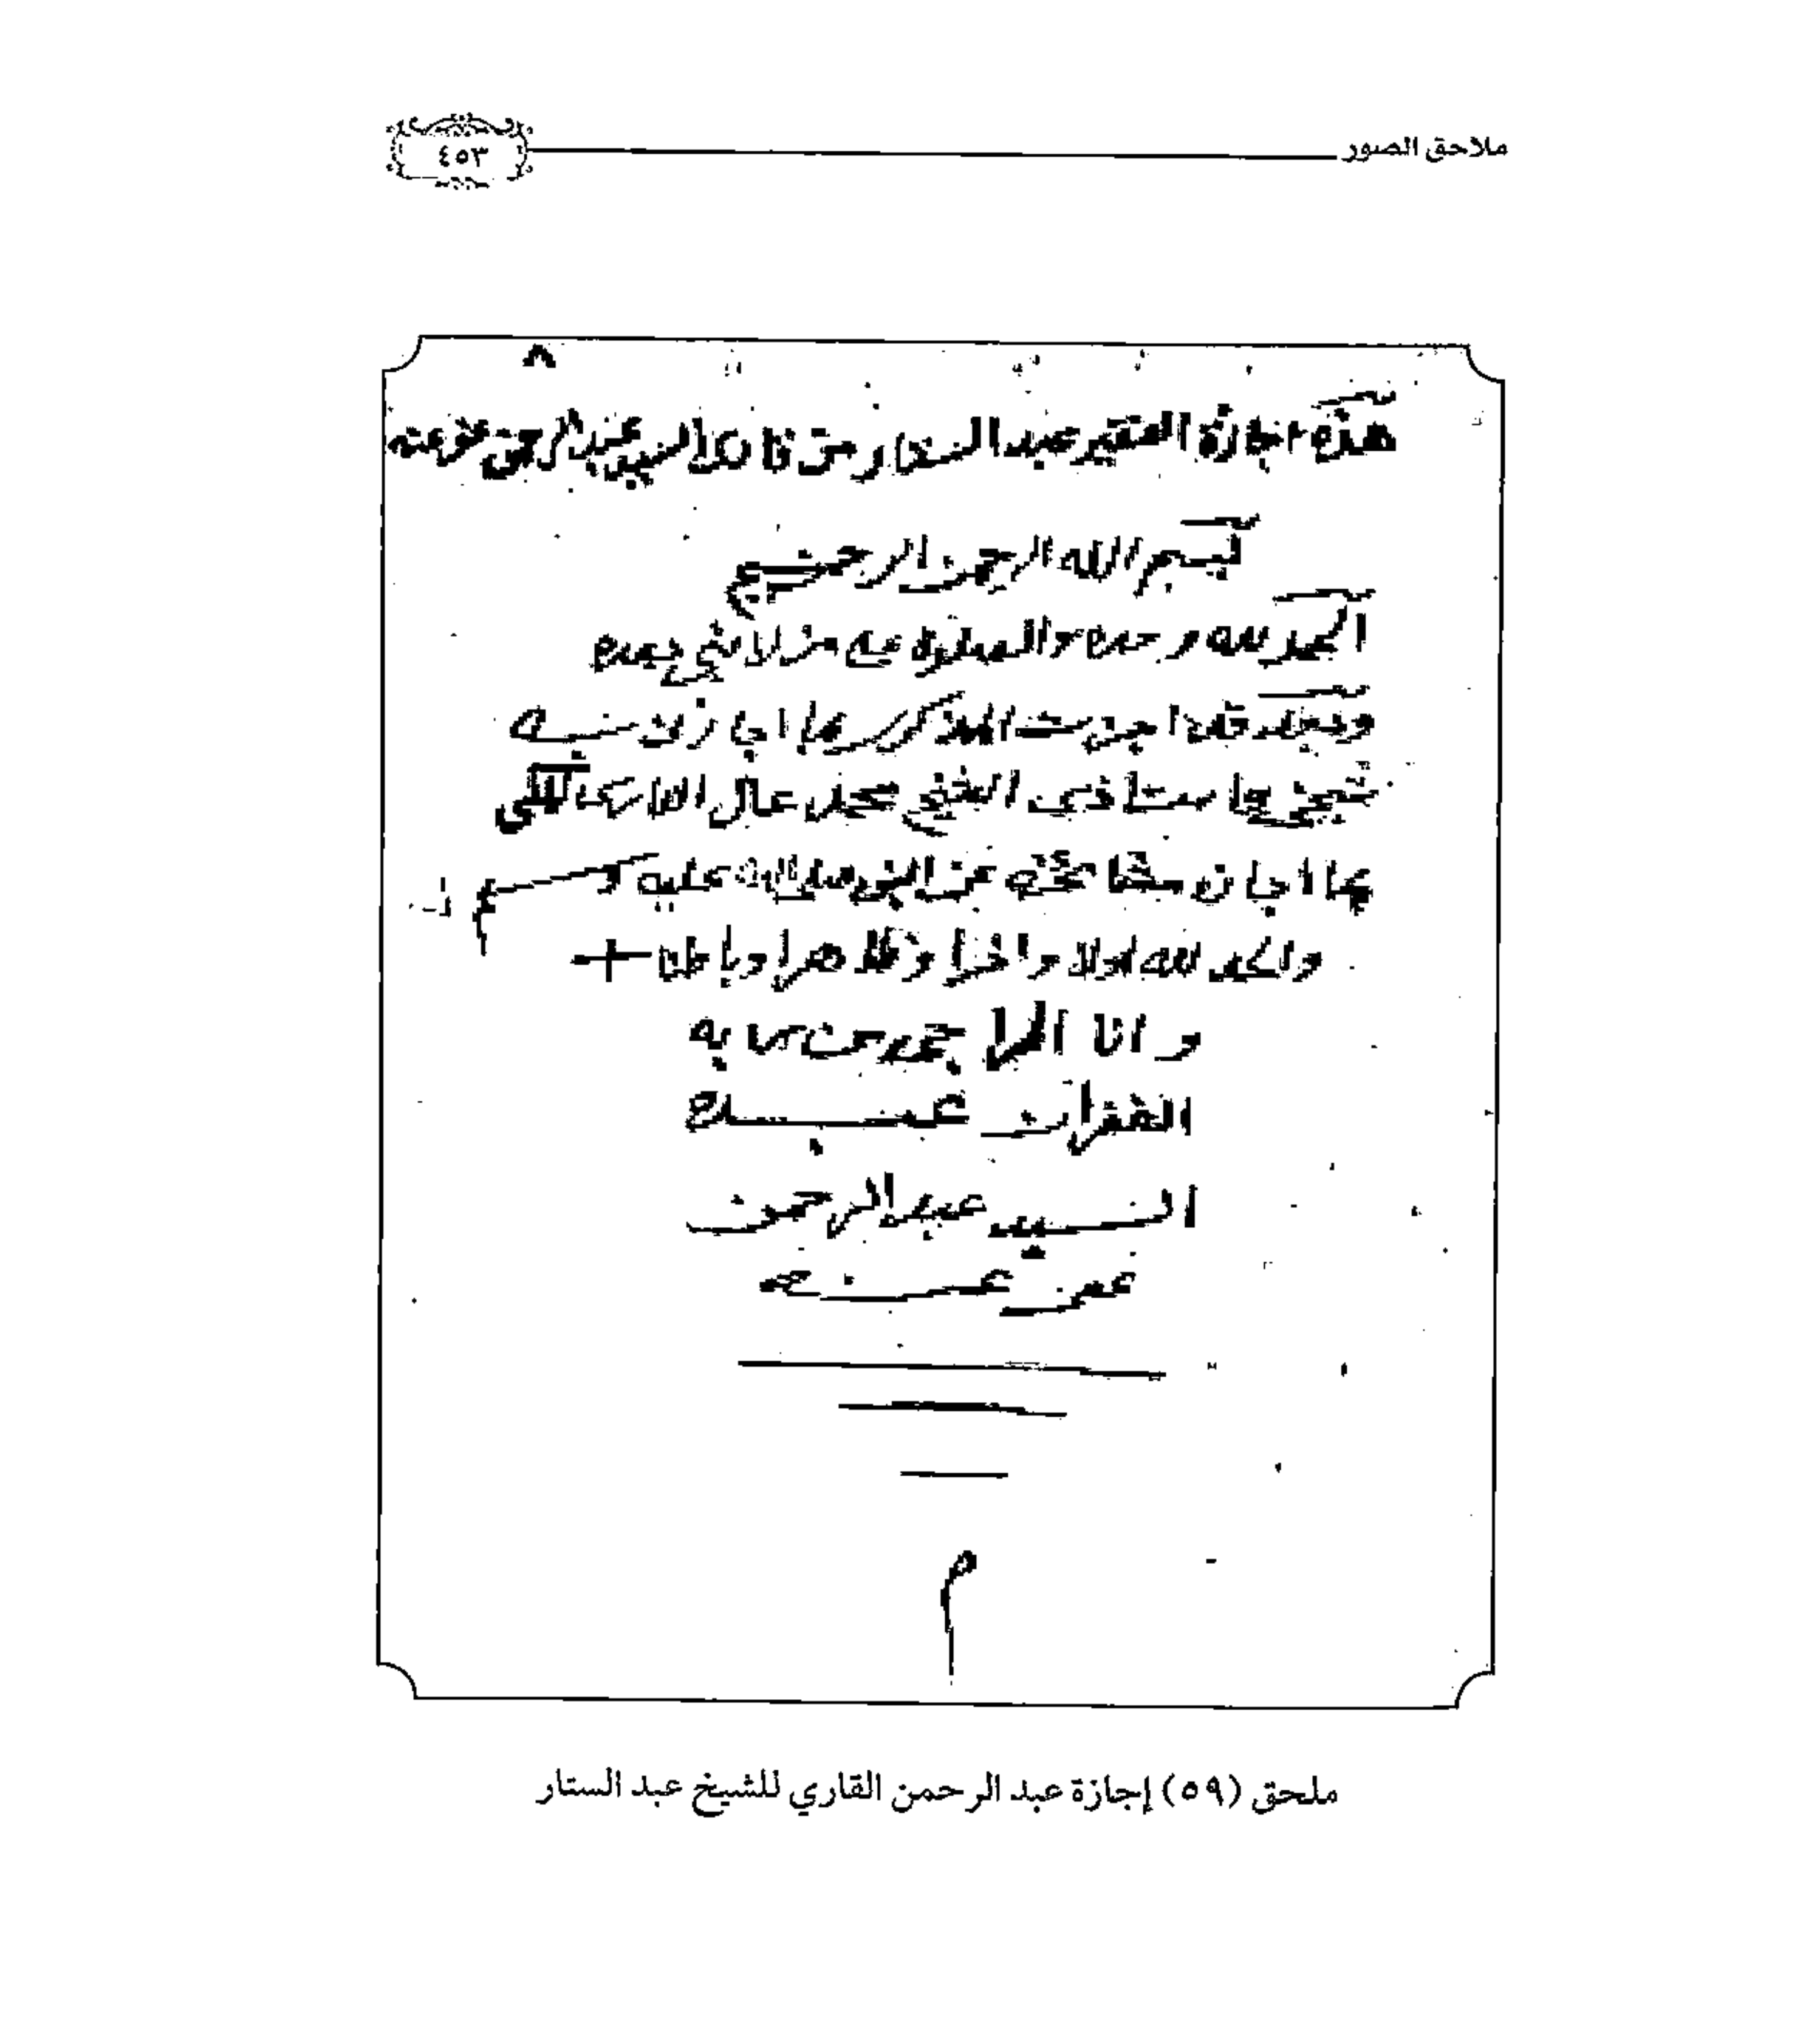 ملاحق الصور
٤٥٣
٨
هذه اجازة الفقير عبد الستار من السيد عبد الرحمن عفي عنه
بسم الله الرحمن الرحيم
الحمد لله وحده والصلاة على من لا نبي بعده
وبعد فقد اجزت المذكور بما اجازني به
شيخي واستاذي الشيخ محمد المالكي
بما اجازه مشائخه عن النبي صلى الله عليه وسلم
والحمد لله اولا واخرا وظاهرا وباطنا
وانا الراجي من ربه
الغفران عبده
السيد عبد الرحمن
عفي عنه
م
ملحق (٥٩) إجازة عبد الرحمن القاري للشيخ عبد الستار